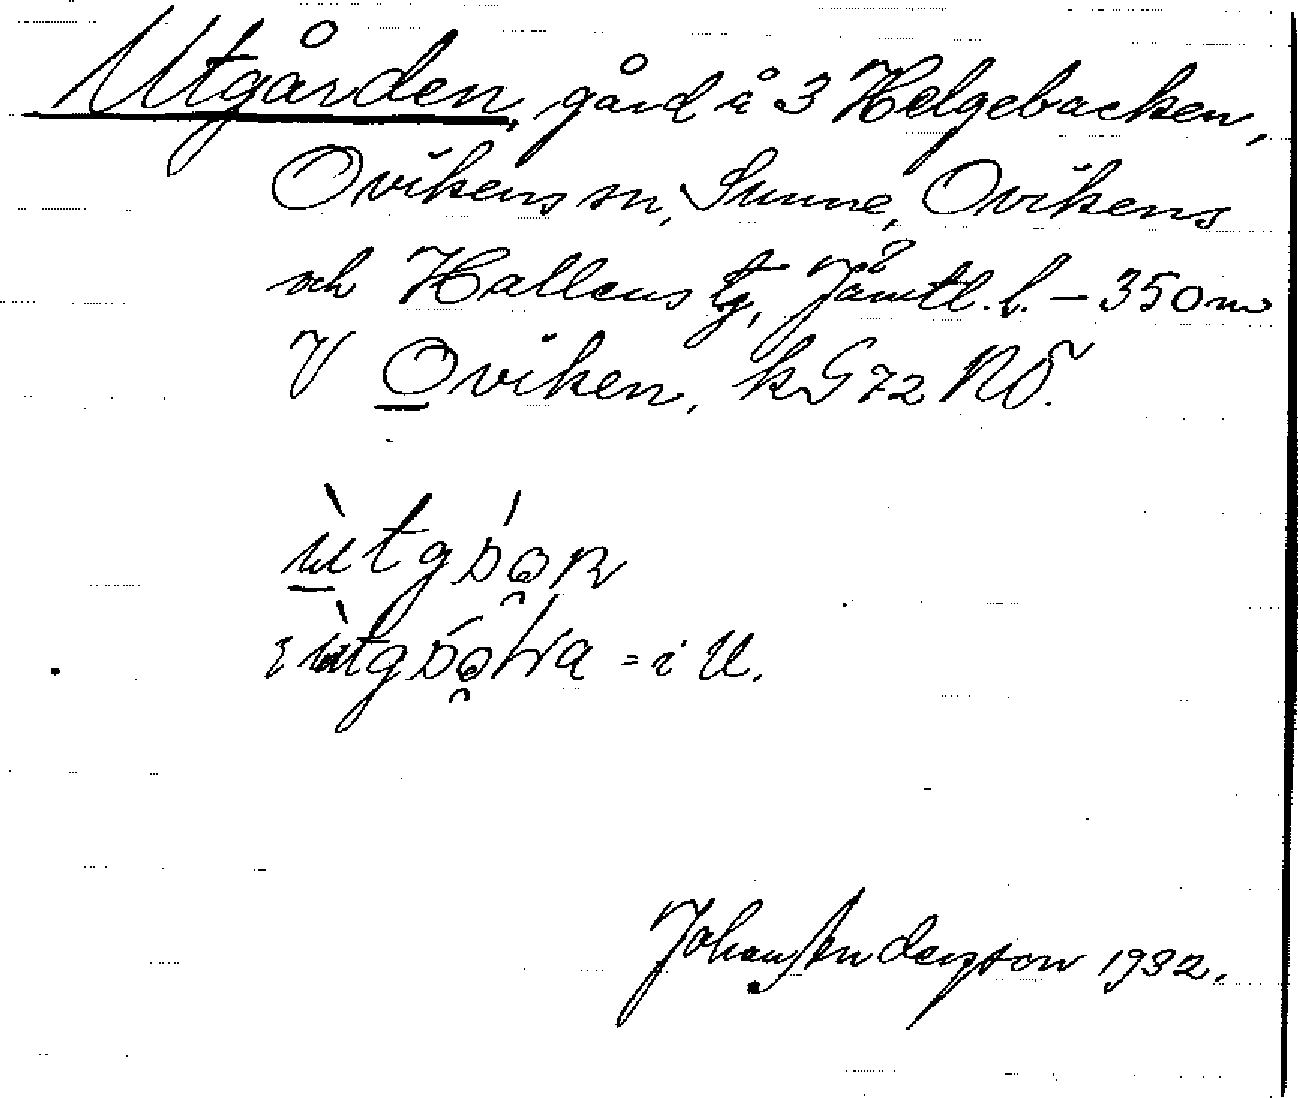 Utgården, gård å 3 Helgebacken,
Ovikens sn, Sunne, Ovikens
och Hallens tg, Jämtl. l. – 350 m
V Oviken, k G 72 NÖ.
= i U.
Johan Anderson 1932.